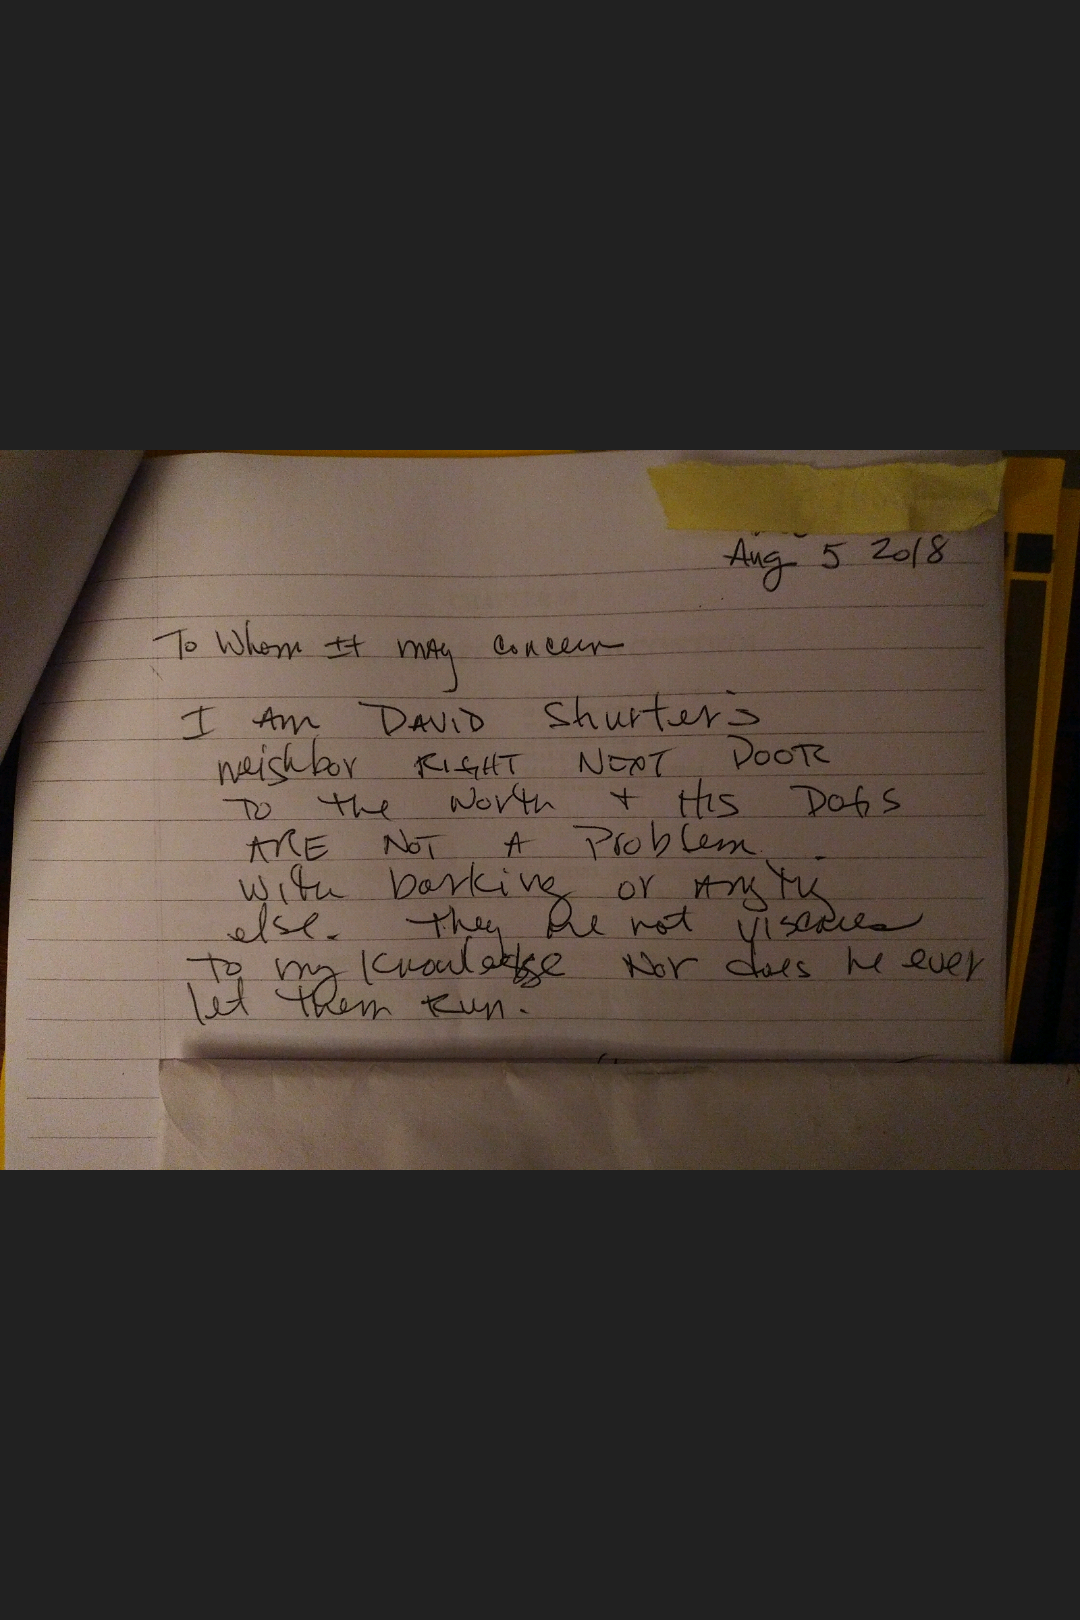 Aug 5 2018
To Whom It may concern
I Am DAVID Shurter's
neighbor RIGHT NEXT DOOR
TO the North + HIS DOGS
ARE NOT A Problem
With barking or
else. they are not
To my Knowledge Nor does he ever
let them Run.